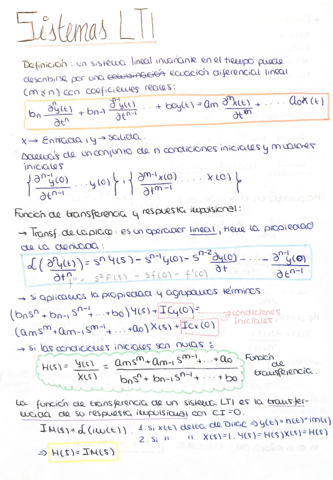 Sistemas LTI
Definición: un sistema lineal invariante en el tiempo puede
describirse por una ecuación diferencial lineal
(m≤n) con coeficientes reales:
bn ∂ⁿy(t)/∂tⁿ + bn-1 ∂ⁿ⁻¹y(t)/∂tⁿ⁻¹ ... + b0y(t) = am ∂ᵐx(t)/∂tᵐ + ... a0x(t)
x → Entrada, y → salida.
Además de un conjunto de n condiciones iniciales y m valores
iniciales
{∂ⁿ⁻¹y(0)/∂tⁿ⁻¹ ... y(0)}, {∂ᵐ⁻¹x(0)/∂tᵐ⁻¹ ... x(0)}
Función de transferencia y respuesta impulsional:
→ Transf. de Laplace: es un operador lineal, tiene la propiedad
de la derivada:
L(∂ⁿy(t)/∂tⁿ) = sⁿY(s) - sⁿ⁻¹y(0) - sⁿ⁻² ∂y(0)/∂t - ... - ∂ⁿ⁻¹y(0)/∂tⁿ⁻¹
= s²F(s) - sf(0) - f'(0)
→ si aplicamos la propiedad y agrupamos términos:
(bnsⁿ + bn-1sⁿ⁻¹ + ... + b0) Y(s) + ICy(0) =
→ condiciones iniciales
(amsᵐ + am-1sᵐ⁻¹ + ... + a0) X(s) + ICx(0)
→ si las condiciones iniciales son nulas:
H(s) = Y(s)/X(s) = amsᵐ + am-1sᵐ⁻¹ + ... + a0 / bnsⁿ + bn-1sⁿ⁻¹ + ... + b0
Función de transferencia.
La función de transferencia de un sistema LTI es la transfor-
mada de su respuesta impulsional con CI=0.
1. si x(t) delta de Dirac → y(t) =
2. si " " X(s)=1. Y(s)=H(s)X(s)=H(s)